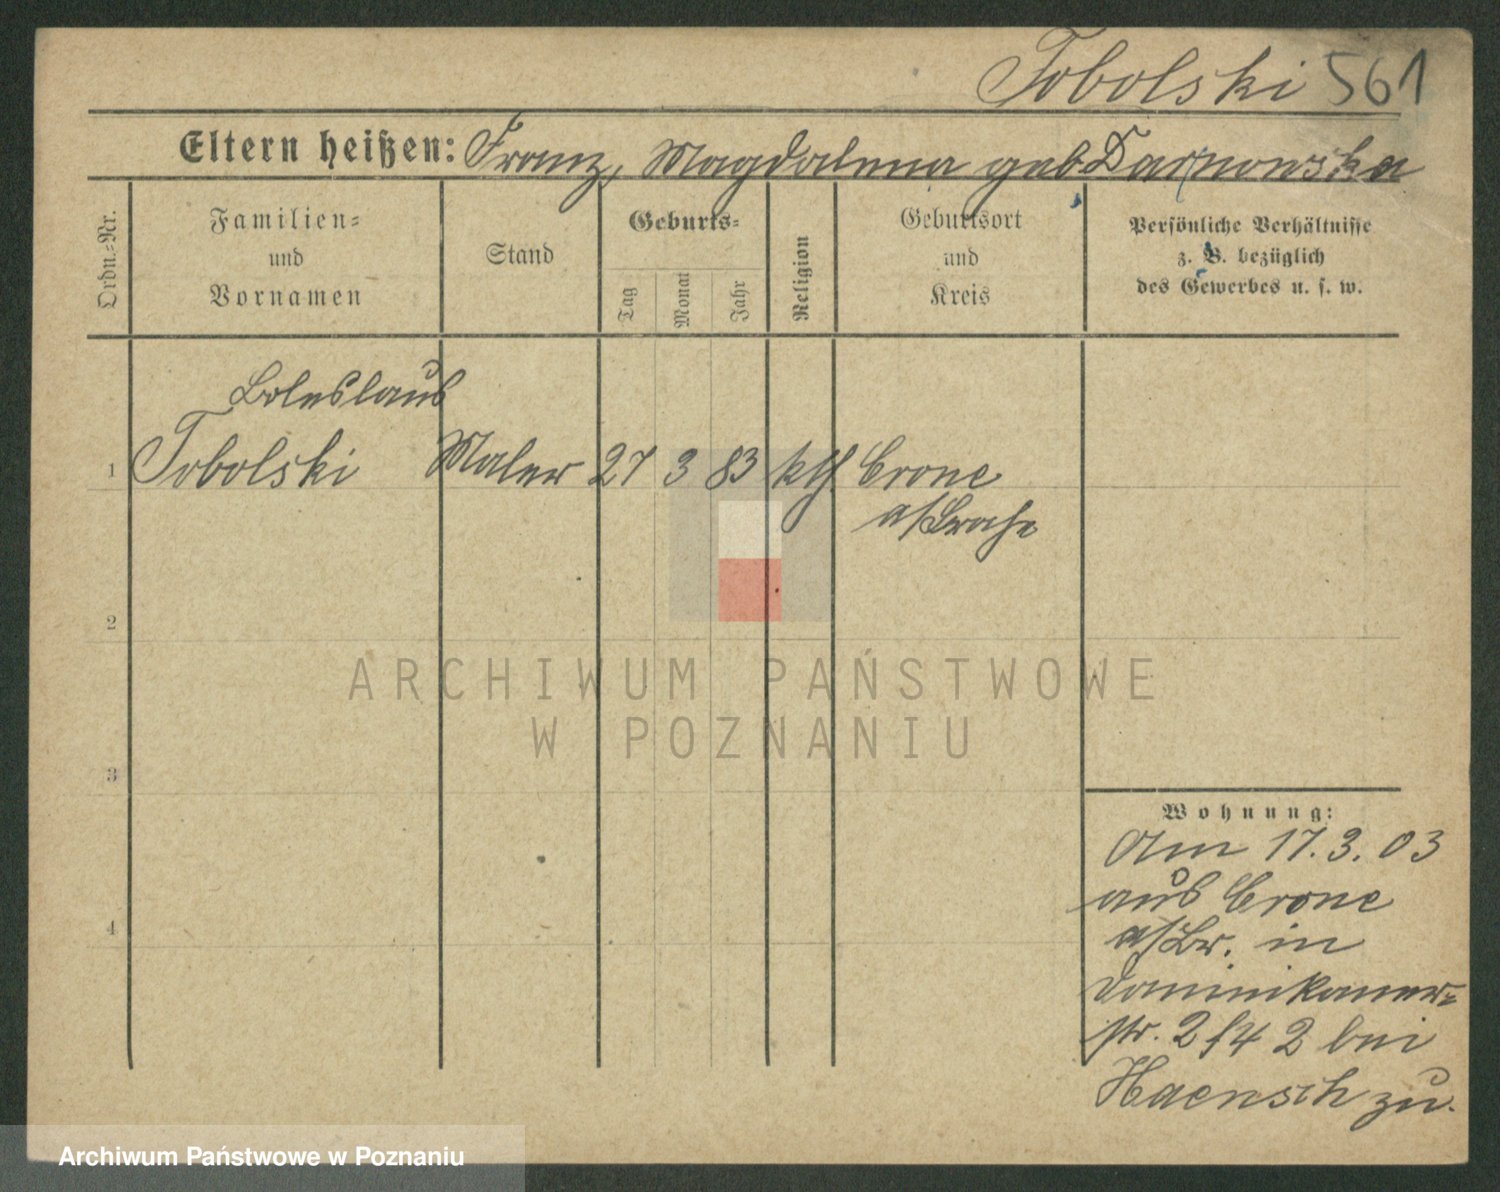 Tobolski 561
Eltern heißen: Franz, Magdalena geb. Darnowska
Ordn.=Nr.
Familien=
und
Vornamen
Stand
Geburts=
Tag
Monat
Jahr
Religion
Geburtsort
und
Kreis
Persönliche Verhältnisse
z. B. bezüglich
des Gewerbes u. s. w.
Boleslaus
1 Tobolski Maler 27 3 83 kth. Crone
a/Brahe
2
ARCHIWUM PAŃSTWOWE
W POZNANIU
3
4
Wohnung:
Am 17.3.03
aus Crone
a/Br. in
Dominikaner=
str. 2 bei
Haensch zu.
Archiwum Państwowe w Poznaniu